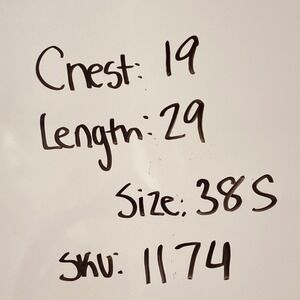 Chest: 19
Length: 29
Size: 38S
SKU: 1174